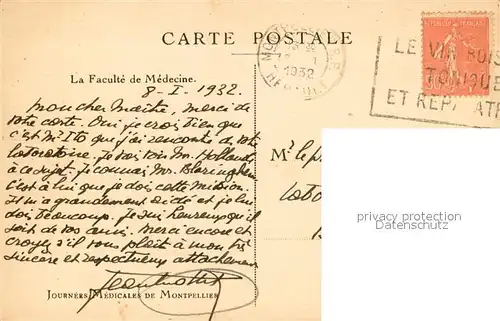 CARTE POSTALE
RÉPUBLIQUE FRANÇAISE
MONTPELLIER
1932
HÉRAULT
LE VIN BOIS
TONIQUE
ET REP ATR
La Faculté de Médecine.
8-I-1932.
Mon cher Maître, merci de
votre carte. Oui je crois bien que
c'est Mr Ito que j'ai rencontré de votre
laboratoire. Je vais voir Mr. Hollande
à ce sujet. Je connais Mr. Blaringhem
c'est à lui que je dois cette mission.
Il m'a grandement aidé et je lui
dois beaucoup. Je suis heureux qu'il
soit de vos amis. Merci encore et
croyez s'il vous plaît à mon très
sincère et respectueux attachement
JOURNÉES MÉDICALES DE MONTPELLIER
Mr le p
Labo
privacy protection
Datenschutz